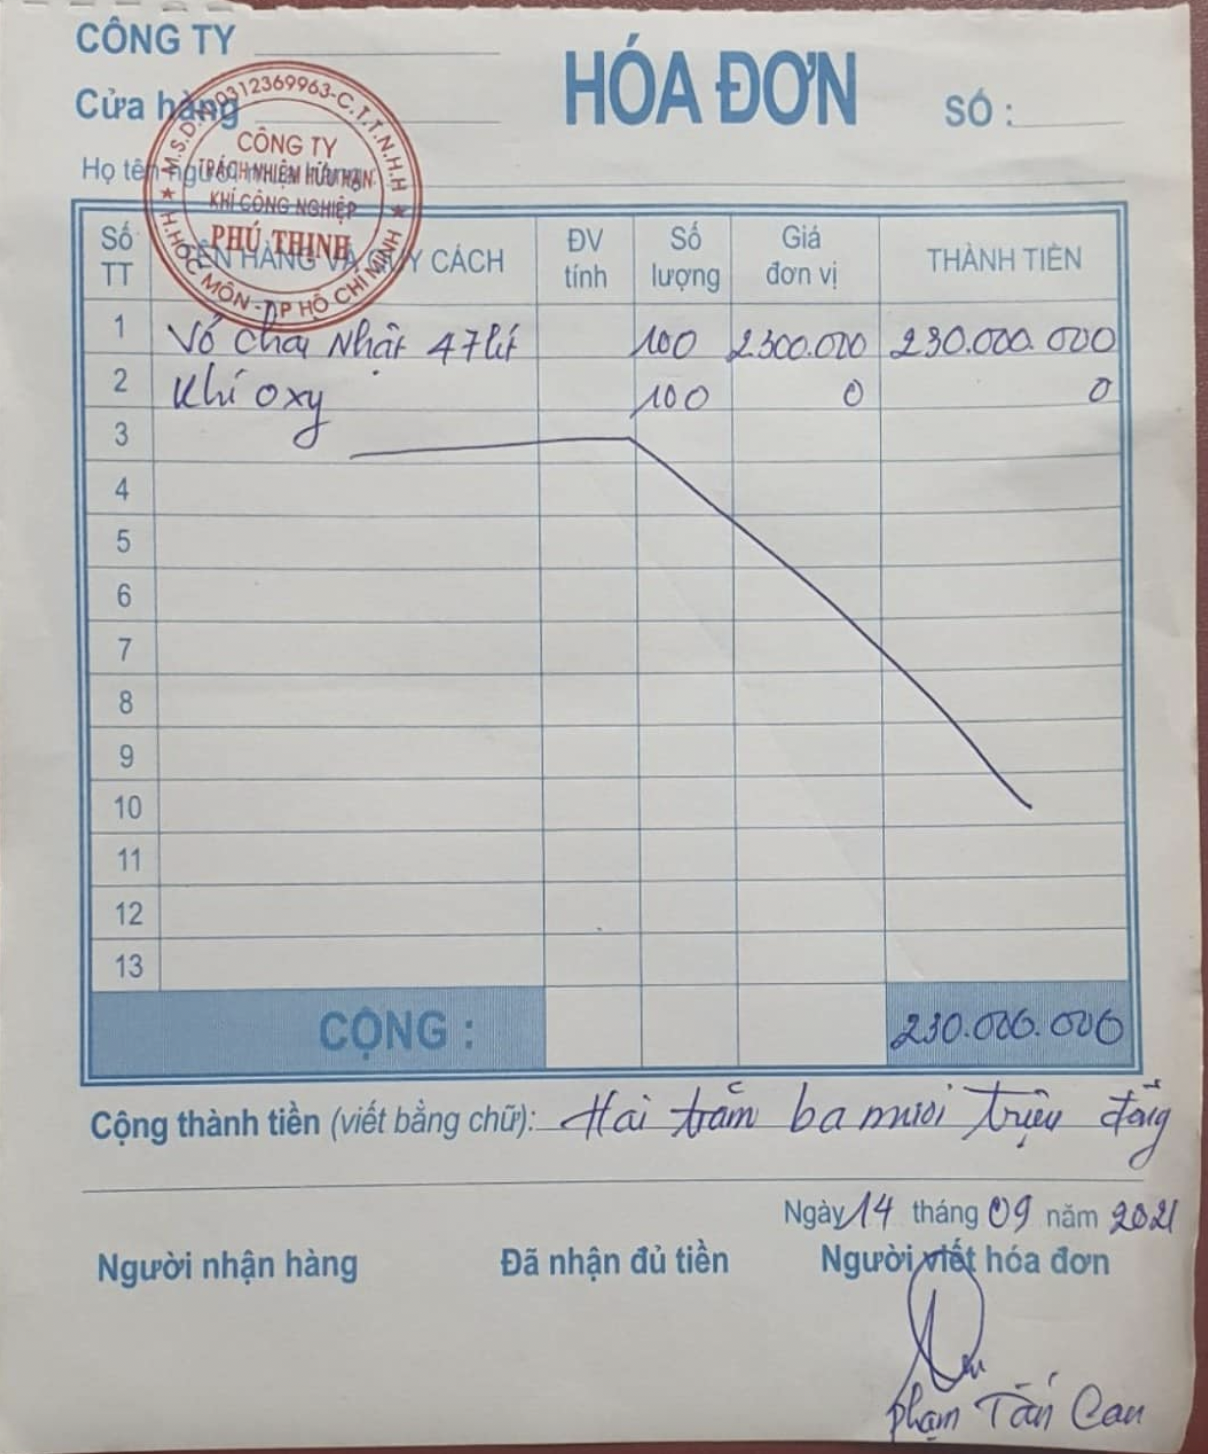 CÔNG TY
HÓA ĐƠN
Cửa hàng
SỐ :
M.S.D.N:0312369963-C.T.T.N.H.H
CÔNG TY
TRÁCH NHIỆM HỮU HẠN
KHÍ CÔNG NGHIỆP
PHÚ THỊNH
H.HÓC MÔN-TP HỒ CHÍ MINH
Họ tên người
Số TT TÊN HÀNG VÀ QUY CÁCH ĐV tính Số lượng Giá đơn vị THÀNH TIỀN
1 Vỏ chai Nhật 47 lít 100 2.300.000 230.000.000
2 Khí oxy 100 0 0
3
4
5
6
7
8
9
10
11
12
13
CỘNG : 230.000.000
Cộng thành tiền (viết bằng chữ): Hai trăm ba mươi triệu đồng
Ngày 14 tháng 09 năm 2021
Người nhận hàng Đã nhận đủ tiền Người viết hóa đơn
Phạm Tấn Can